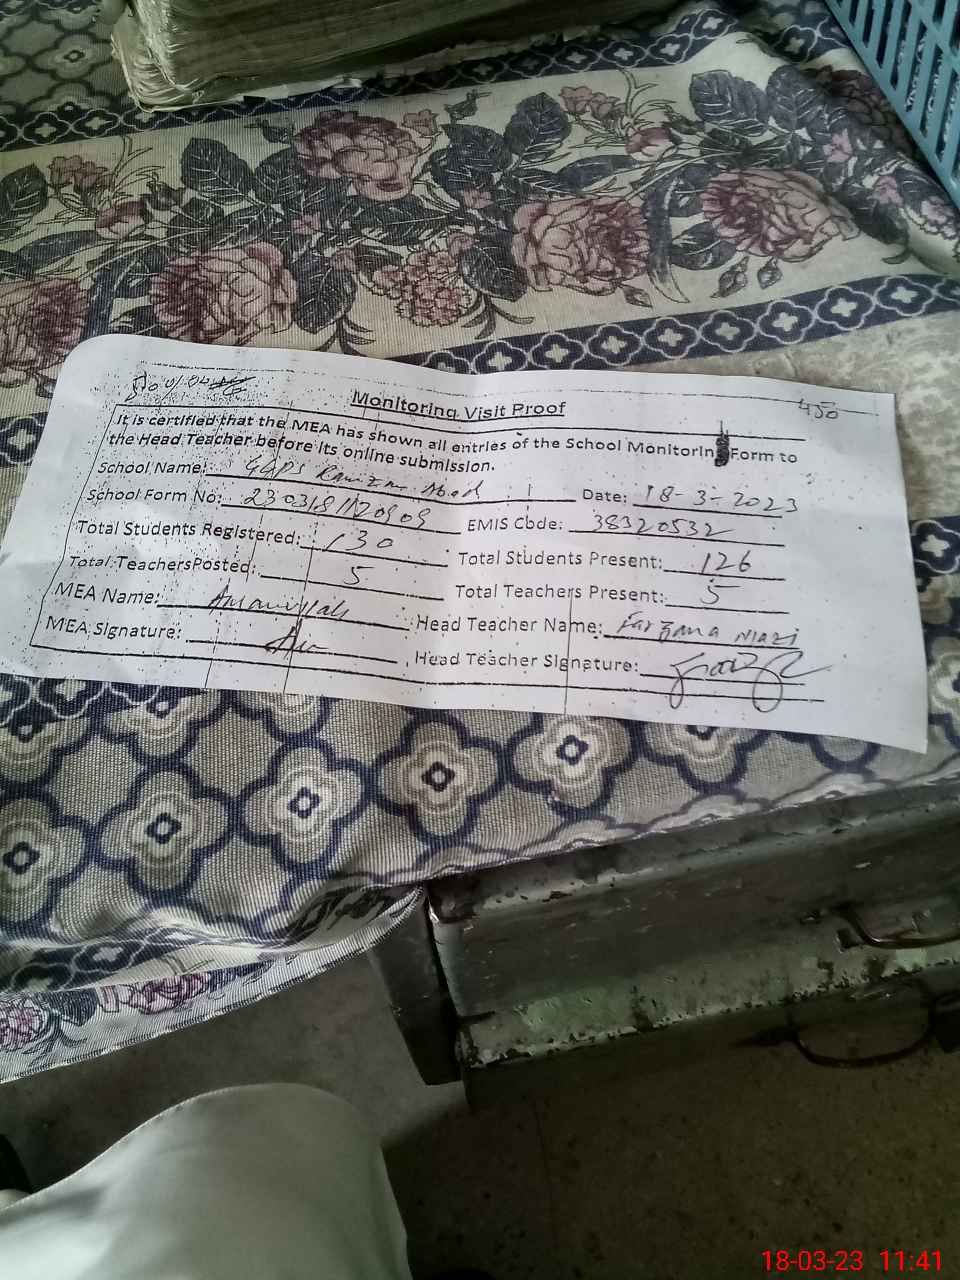 450
Monitoring Visit Proof
It is certified that the MEA has shown all entries of the School Monitoring Form to
the Head Teacher before its online submission.
School Name: GGPS Ramzan Abad Date: 18-3-2023
School Form No: EMIS Code: 38320532
Total Students Registered: 130 Total Students Present: 126
Total TeachersPosted: 5 Total Teachers Present: 5
MEA Name: Amanullah Head Teacher Name: Farzana Niazi
MEA Signature: Head Teacher Signature:
18-03-23 11:41